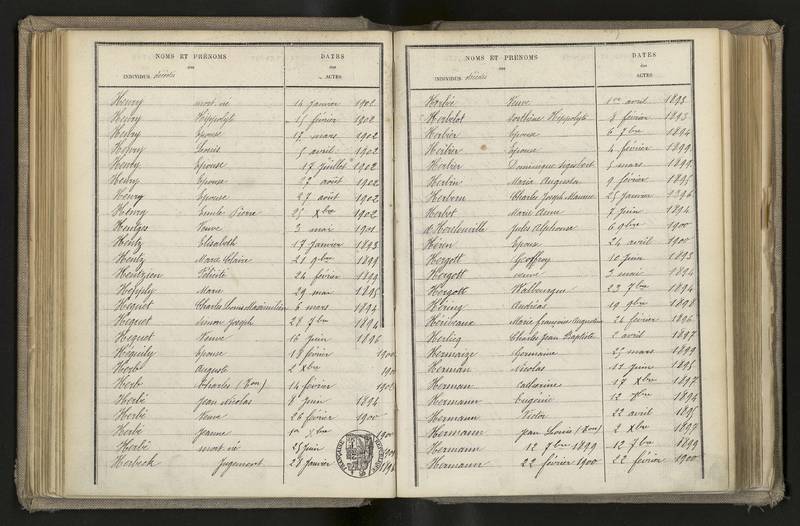 NOMS ET PRÉNOMS
des
INDIVIDUS décédés
DATES
des
ACTES
Henry mort-né 14 Janvier 1902
Henry Hippolyte 15 février 1902
Henry Epouse 17 mars 1902
Henry Louis 5 avril 1902
Henry Epouse 17 Juillet 1902
Henry Epouse 27 août 1902
Henry Epouse 27 août 1902
Henry Emile Pierre 25 Xbre 1902
Veuve 3 mai 1901
Hentz Elisabeth 17 Janvier 1893
Hentz Marie Claire 21 9bre 1899
Hentzien Félicité 24 février 1899
Hepply Marie 29 mai 1895
Hequet Charles Louis Maximilien 6 mars 1894
Hequet Simon Joseph 28 7bre 1894
Hequet Veuve 16 Juin 1896
Epouse 18 février
Herb Auguste 2 Xbre
Herb Charles (Von) 14 février 1902
Herbé Jean Nicolas 8 Juin 1894
Herbé Veuve 26 février 1900
Herbé Jeanne 1er Xbre
Herbé mort-né 25 Juin
Herbeck Jugement 28 Janvier
NOMS ET PRÉNOMS
des
INDIVIDUS décédés
DATES
des
ACTES
Herbé Veuve 1er avril 1893
Herbelot Hippolyte 8 février 1893
Herbier Epouse 6 7bre 1894
Herbier Epouse 4 février 1899
Herbier Dominique 5 mars 1899
Herbin Marie Augusta 9 février 1895
Charles Joseph Maurice 25 Janvier 1896
Herbot Marie Anne 7 Juin 1894
d'Herdeuville Jules Alphonse 6 9bre 1900
Epoux 24 avril 1900
Hergott Geoffroy 10 Juin 1893
Hergott veuve 3 mai 1894
Hergott Walburgue 23 7bre 1894
Hering Andréas 19 9bre 1898
Marie françoise Augustine 24 février 1896
Charles Jean Baptiste 2 avril 1897
Germaine 25 mars 1899
Herman Nicolas 12 Juin 1895
Herman Catherine 17 Xbre 1897
Hermann Eugénie 12 1894
Hermann Victor 22 avril 1895
Hermann Jean Louis (Von) 2 Xbre 1897
Hermann 12 7bre 1899 12 7bre 1899
Hermann 22 février 1900 22 février 1900